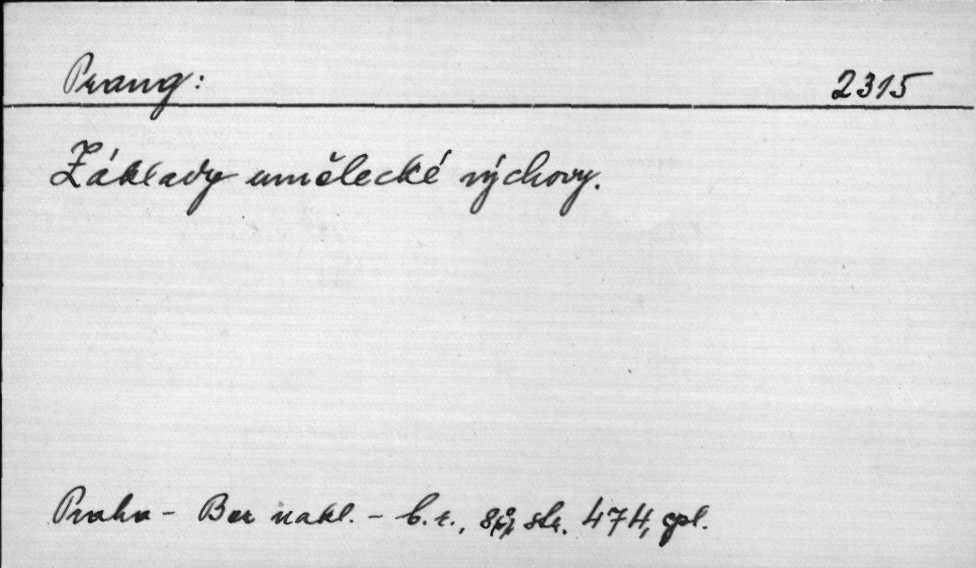 Prang:
2315
Základy umělecké výchovy.
Praha - Bez nakl. - b.r., 8°, str. 474, cpl.